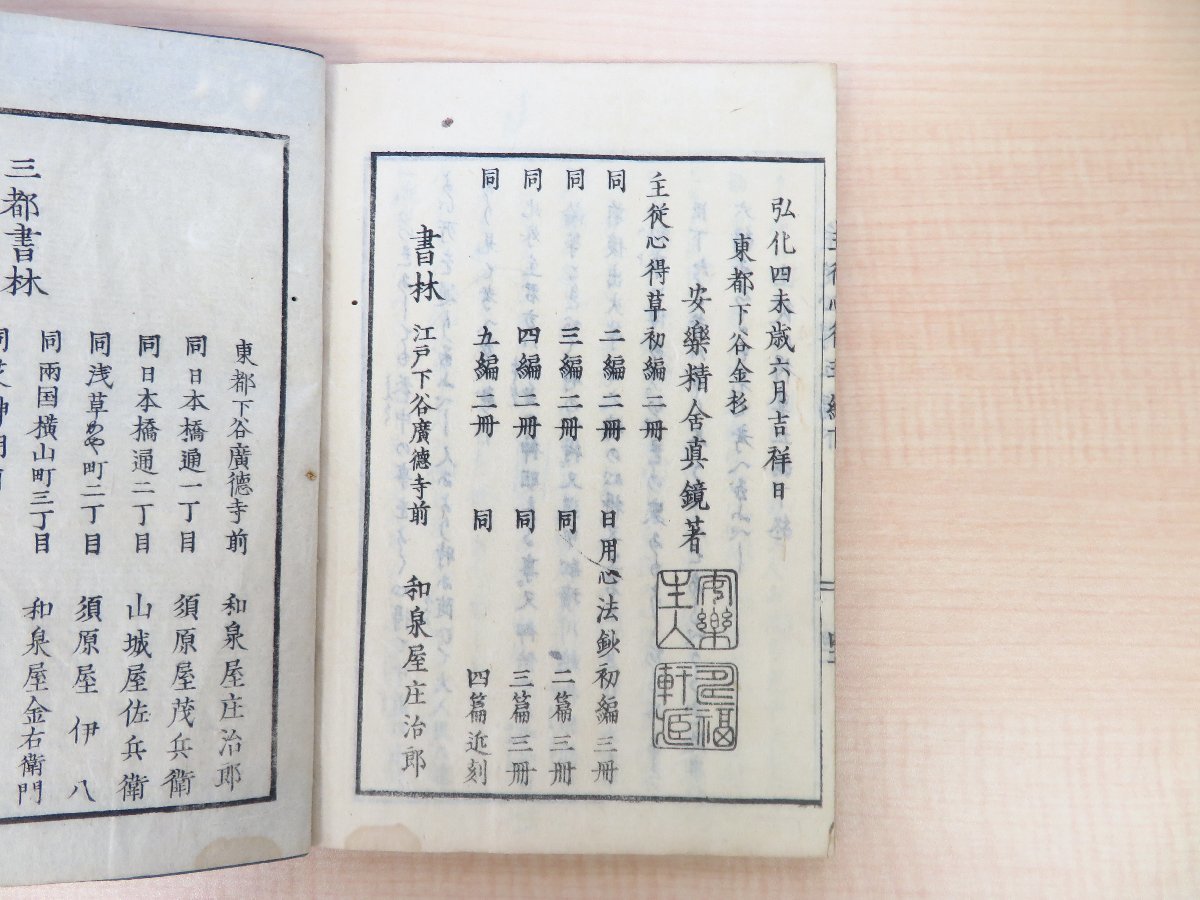 弘化四未歳六月吉祥日
東都下谷金杉
安樂精舎真鏡著
主従心得草初編二冊
同 二編二冊 日用心法鈔初編三冊
同 三編二冊 同 二篇三冊
同 四編二冊 同 三篇三冊
同 五編二冊 同 四篇近刻
書林 江戸下谷廣徳寺前 和泉屋庄治郎
東都下谷廣徳寺前 和泉屋庄治郎
同日本橋通一丁目 須原屋茂兵衛
同日本橋通二丁目 山城屋佐兵衛
同浅草かや町二丁目 須原屋伊八
同兩国横山町三丁目 和泉屋金右衛門
三都書林